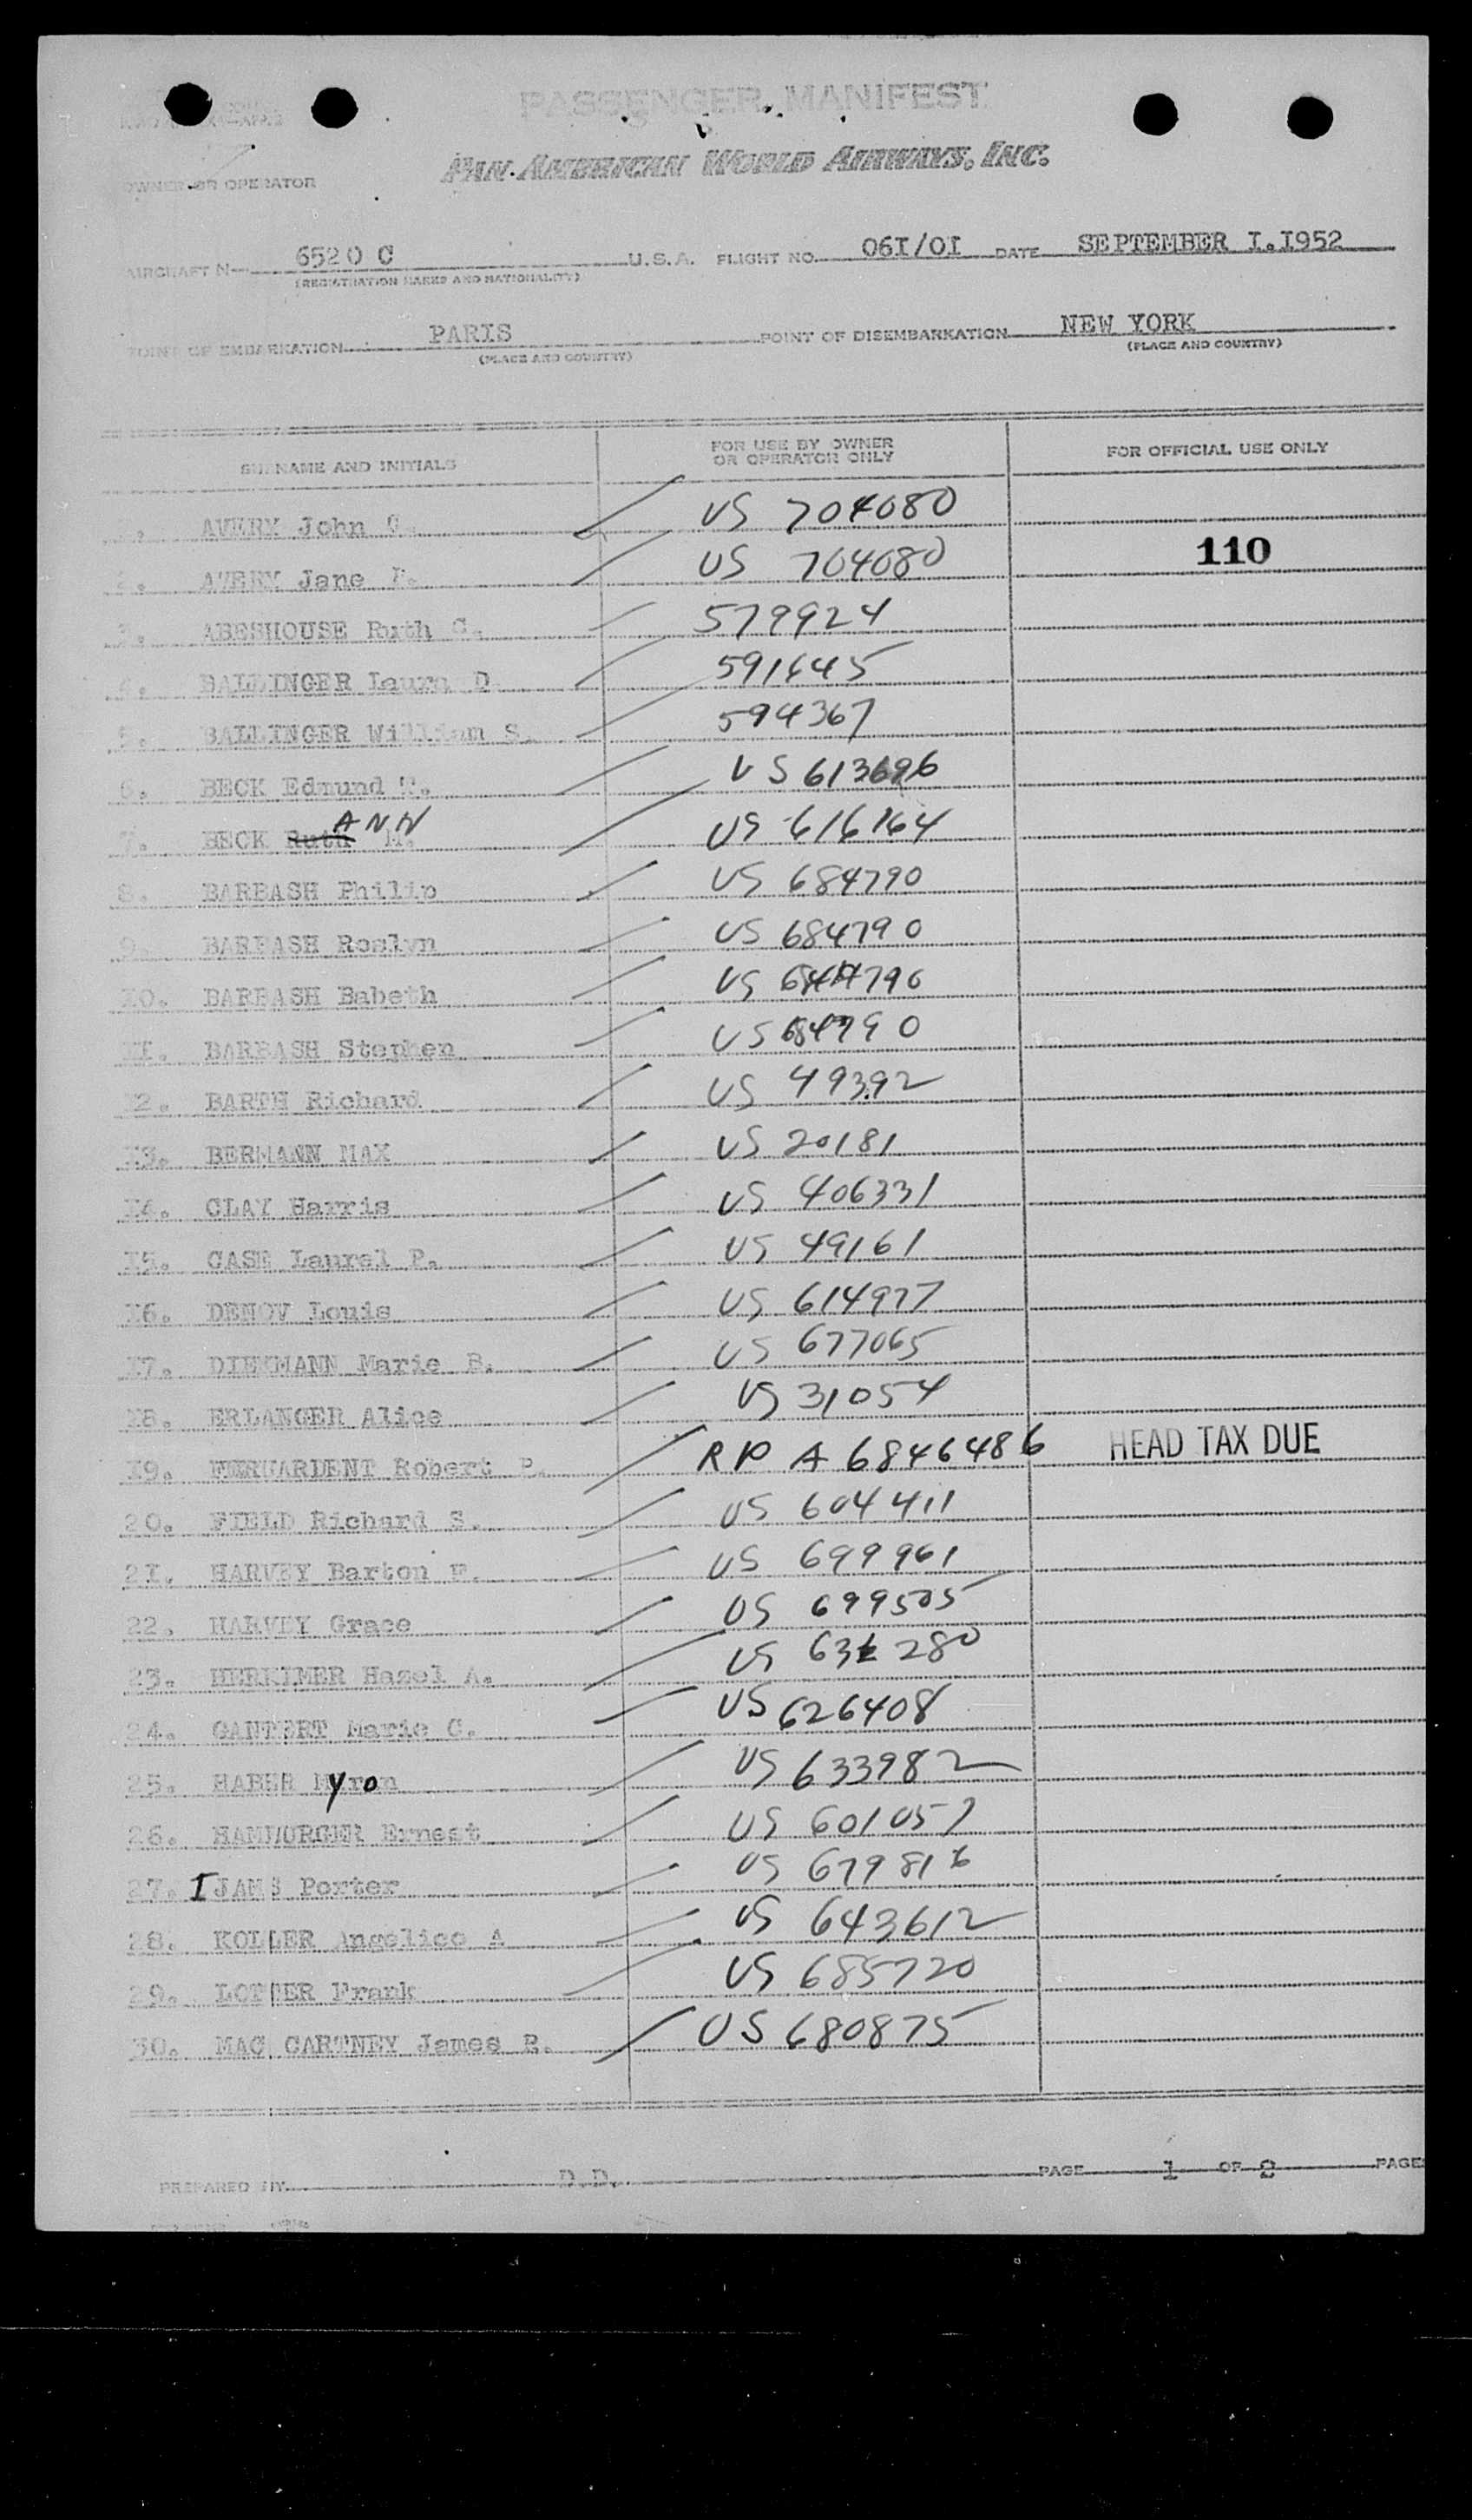 PASSENGER MANIFEST
PAN AMERICAN WORLD AIRWAYS, INC.
OWNER OR OPERATOR
AIRCRAFT N 6520 C U.S.A. FLIGHT NO. 06I/0I DATE SEPTEMBER I.I952
(REGISTRATION MARKS AND NATIONALITY)
POINT OF EMBARKATION PARIS POINT OF DISEMBARKATION NEW YORK
(PLACE AND COUNTRY) (PLACE AND COUNTRY)
SURNAME AND INITIALS FOR USE BY OWNER OR OPERATOR ONLY FOR OFFICIAL USE ONLY
AVERY John US 704080
2. AVERY Jane US 704080 110
3. ABESHOUSE Ruth G. 579924
4. BALLINGER Laura D 591645
5. BALLINGER William S. 594367
6. BECK Edmund T. US 613696
7. BECK Ruth ANN M. US 616164
8. BARBASH Philip US 684790
9. BARBASH Roslyn US 684790
I0. BARBASH Babeth US 684790
II. BARBASH Stephen US 684790
I2. BARTH Richard US 49392
I3. BERMANN MAX US 20181
I4. CLAY Harris US 406331
I5. CASE Laurel P. US 49161
I6. DENOV Louis US 614977
I7. DIEKMANN Marie B. US 677065
I8. ERLANGER Alice US 31054
I9. Robert P. RP A 6846486 HEAD TAX DUE
20. FIELD Richard S. US 604411
2I. HARVEY Barton US 699961
22. HARVEY Grace US 699505
23. HERKIMER Hazel A. US 280
24. GANTERT Marie C. US 626408
25. HABER Myron US 633982
26. HAMBURGER Ernest US 601057
27. IJAMS Porter US 679816
28. KOLLER Angelico A US 643612
29. LOTTER Frank US 685720
30. MAC CARTNEY James R. US 680875
PREPARED BY D.D. PAGE 1 OF 2 PAGES